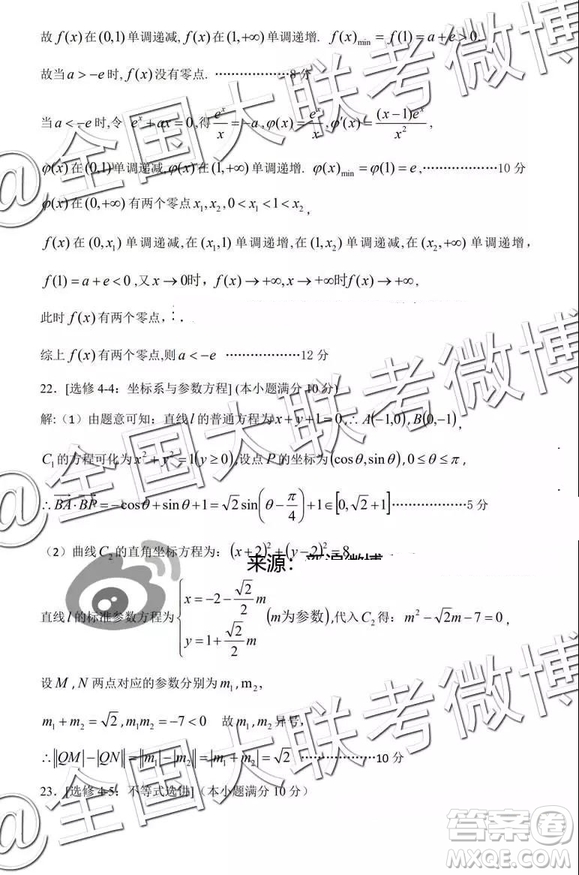 故 f(x) 在 (0,1) 单调递减, f(x) 在 (1,+∞) 单调递增. f(x)min = f(1) = a+e>0.
故当 a>-e 时, f(x) 没有零点. ………………8 分
当 a<-e 时, 令 e^x+ax=0, 得 e^x/x = -a, φ(x) = e^x/x, φ'(x) = (x-1)e^x/x²,
φ(x) 在 (0,1) 单调递减, φ(x) 在 (1,+∞) 单调递增. φ(x)min = φ(1) = e, …………10 分
φ(x) 在 (0,+∞) 有两个零点 x₁, x₂, 0<x₁<1<x₂,
f(x) 在 (0,x₁) 单调递减, 在 (x₁,1) 单调递增, 在 (1,x₂) 单调递减, 在 (x₂,+∞) 单调递增,
f(1) = a+e<0, 又 x→0时, f(x)→+∞, x→+∞时f(x)→+∞,
此时 f(x) 有两个零点,
综上 f(x) 有两个零点,则 a<-e ………………12 分
22. [选修 4-4: 坐标系与参数方程] (本小题满分 10 分)
解:(1) 由题意可知: 直线 l 的普通方程为 x+y+1=0, ∴A(-1,0), B(0,-1),
C₁ 的方程可化为 x²+y²=1(y≥0), 设点 P 的坐标为 (cosθ,sinθ), 0≤θ≤π,
∴BA·BP = -cosθ+sinθ+1 = √2sin(θ-π/4)+1∈[0,√2+1] ………………5 分
(2) 曲线 C₂ 的直角坐标方程为: (x+2)²+(y-2)²=8
来源:
直线 l 的标准参数方程为 {x=-2-√2/2 m, y=1+√2/2 m (m为参数), 代入 C₂ 得: m²-√2m-7=0,
设 M, N 两点对应的参数分别为 m₁, m₂,
m₁+m₂=√2, m₁m₂=-7<0 故 m₁, m₂ 异号,
∴||QM|-|QN|| = ||m₁|-|m₂|| = |m₁+m₂| = √2 ………………10 分
23. [选修 4-5: 不等式选讲] (本小题满分 10 分)
@全国大联考微博
@全国大联考微博
@全国大联考微博
答案圈
MXQE.COM